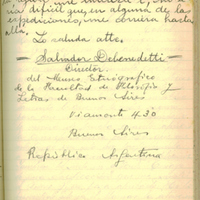 ria difícil que, en alguna de las
expediciones, me corriera hasta
alla.
Le saluda atte.
— Salvador Debenedetti —
Director.
del Museo Etnográfico
de la Facultad de Filosofía y
Letras de Buenos Aires
Viamonte 430
Buenos Aires
República Argentina